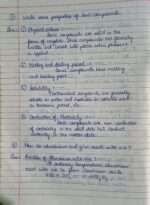 Q Write some properties of ionic compounds.
Ans:- ① Physical nature :-
Ionic compounds are solid in the
form of crystals. These compounds are generally
brittle and break into pieces when pressure
is applied.
② Melting and Boiling point :-
Ionic compounds have melting
and boiling point
③ Solubility :-
compounds are generally
soluble in water and insoluble in solvents such
as kerosene, petrol, etc.
④ Conduction of Electricity :-
Ionic compounds are non conductor
of electricity in its solid state but conduct
electricity in the molten state.
Q How do aluminium and give reacts with air?
Ans Reaction of Aluminium with Air :-
At ordinary temperature, Aluminium
react with air to form Aluminium oxide
4Al + 3O₂ → 2Al₂O₃